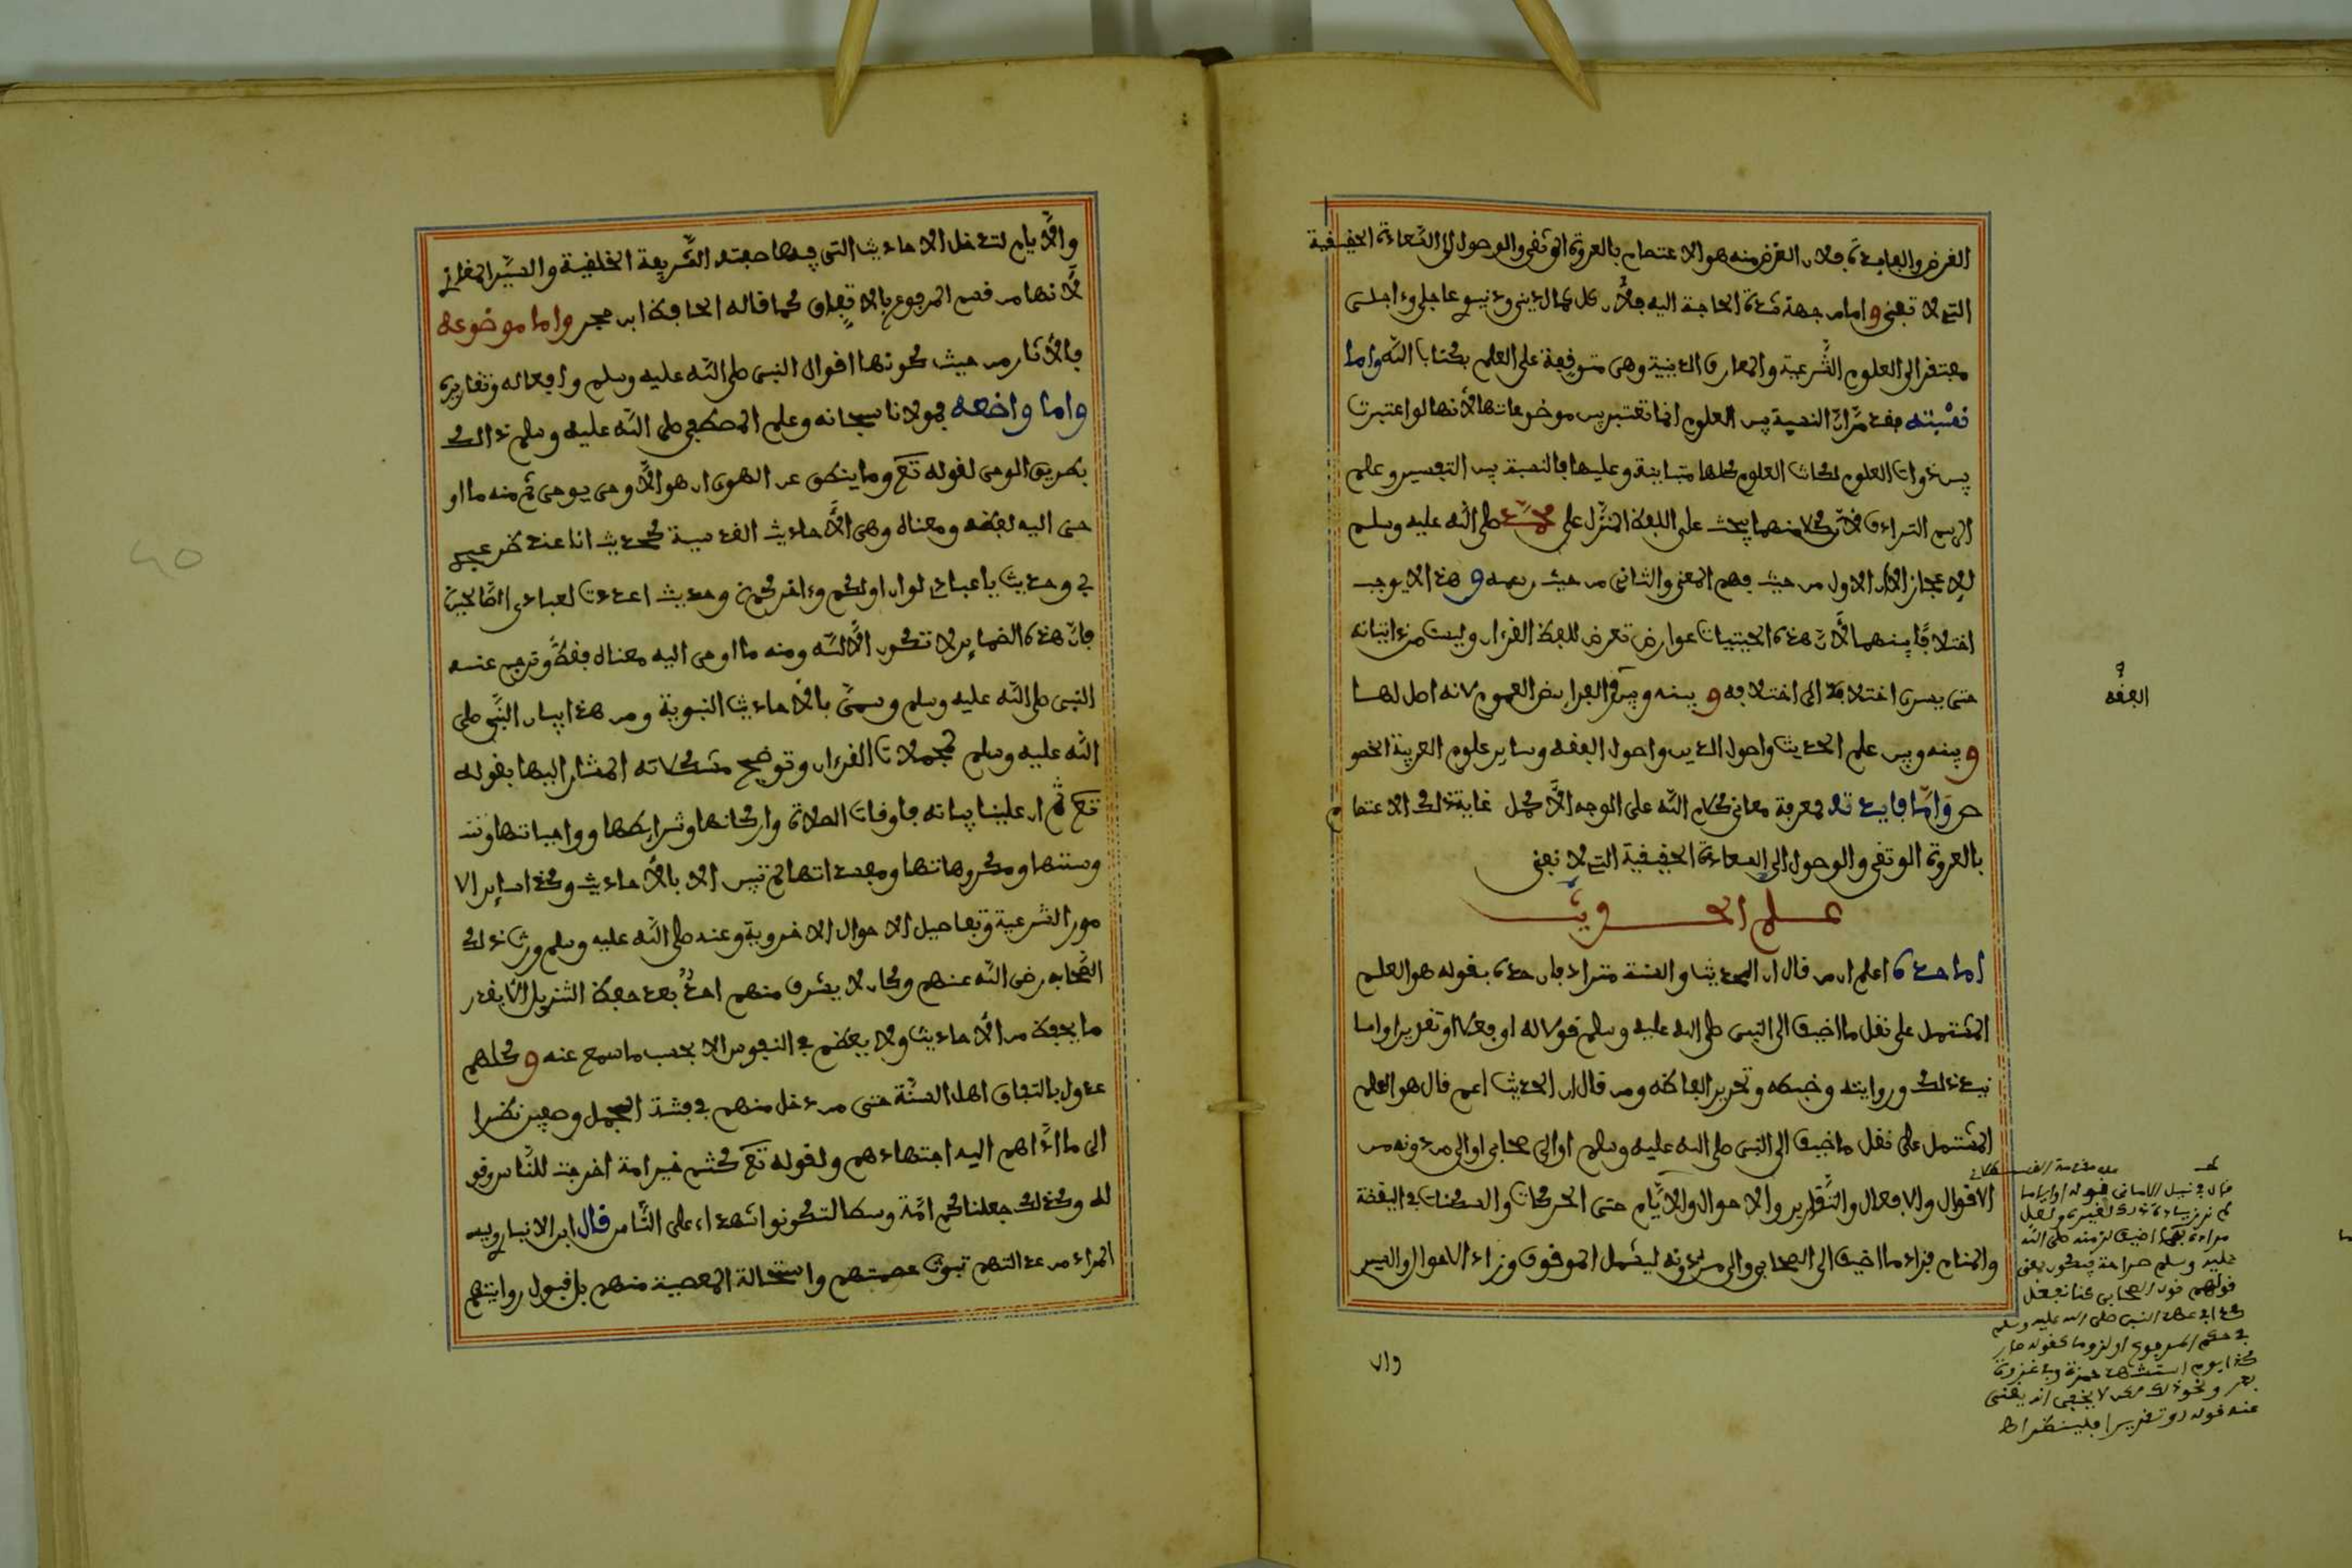 الغرض والفايدة فلان الغرض منه هو الاعتصام بالعروة الوثقى والوصول الى السعادة الحقيقية
التي لا تفنى واما من جهة شدة الحاجة اليه فلأن كل كمال ديني ودنيوي عاجلي وءاجلي
مفتقر الى العلوم الشرعية والمعارف الدينية وهي متوقفة على العلم بكتاب الله واما
نسبته فقد مر ان النسبة بين العلوم انما تعتبر بين موضوعاتها لأنها لو اعتبرت
بين ذوات العلوم لكانت العلوم كلها متباينة وعليها فالنسبة بين التفسير وعلم
الرسم الترادف لأن كلا منهما يبحث على اللفظ المنزل على محمد صلى الله عليه وسلم
للاعجاز الا ان الاول من حيث فهم المعنى والثاني من حيث رسمه وهذا لا يوجب
اختلافا بينهما لأن هذه الحيثيات عوارض تعرض للفظ القرءان وليست من ذاتياته
حتى يسري اختلافها الى اختلافه وبينه وبين الفرايض العموم لانه اصل لها
وبينه وبين علم الحديث واصول الدين واصول الفقه وساير علوم العربية الخصو
ص واما فايدته فمعرفة معاني كلام الله على الوجه الأكمل غاية ذلك الاعتصام
بالعروة الوثقى والوصول الى السعادة الحقيقية التي لا تفنى
علم الحديث
اما حده اعلم ان من قال ان الحديث والسنة مترادفان حده بقوله هو العلم
المشتمل على نقل ما اضيف الى النبي صلى الله عليه وسلم قولا له او فعلا او تقريرا واما
نيد ذلك وروايته وضبطه وتحرير الفاظه ومن قال ان الحديث اعم قال هو العلم
المشتمل على نقل ما اضيف الى النبي صلى الله عليه وسلم او الى صحابي او الى من دونه من
الاقوال والافعال والتقارير والاحوال والايام حتى الحركات والسكنات في اليقظة
والمنام فزاد ما اضيف الى الصحابي والى من دونه ليشمل الموقوف وزاد الاحوال والسير
الفقه
قال في نيل الاماني قوله او اياما
لم نر زيادة ذلك لغيره ولعل
مراده بهما اضيف لزمنه صلى الله
عليه وسلم صراحة فيكون يعني
قولهم قول الصحابي كنا نفعل
كذا في عهد النبي صلى الله عليه وسلم
في حكم المرفوع او لزوما كقوله صار
كذا يوم استشهد حمزة وفي غزوة
بدر ونحو ذلك لكن لا يخفى انه يغني
عنه قوله او تقريرا فلينظر اهـ
والا
والأيام لتدخل الاحاديث التي فيها صفته الشريفة الخلقية والسير المغازي
لأنها من قسم المرفوع بالاتفاق كما قاله الحافظ ابن حجر واما موضوعه
فالأثار من حيث كونها اقوال النبي صلى الله عليه وسلم وافعاله وتقاريره
واما واضعه فمولانا سبحانه وعلم المصطفى صلى الله عليه وسلم ذالك
بطريق الوحي لقوله تع وما ينطق عن الهوى ان هو الا وحي يوحى ثم منه ما او
حى اليه لفظه ومعناه وهي الأحاديث القدسية كحديث انا عند ظن عبد
ي وحديث يا عبادي لو ان اولكم وءاخركم وحديث اعددت لعبادي الصالحين
فان هذه الضماير لا تكون الا لله ومنه ما اوحى اليه معناه فقط وترجم عنه
النبي صلى الله عليه وسلم وسمي بالأحاديث النبوية ومن هذا بيان النبي صلى
الله عليه وسلم لمجملات القرءان وتوضيح مشكلاته المشار اليها بقوله
تع ثم ان علينا بيانه فاوقات الصلاة واركانها وشرايطها وواجباتها ونند
وسننها ومكروهاتها ومفسداتها لم تتبين الا بالأحاديث وكذا ساير الا
مور الشرعية وتفاصيل الاحوال الاخروية وعنه صلى الله عليه وسلم ورث ذلك
الصحابه رضي الله عنهم وكان لا يشرف منهم احد بعد حفظ التنزيل الا بقدر
ما يحفظ من الأحاديث ولا يعظم في النفوس الا بحسب ما سمع عنه وكلهم
عدول باتفاق اهل السنة حتى من دخل منهم في فتنة الجمل وصفين نظرا
الى ما اداهم اليه اجتهادهم ولقوله تع كنتم خير امة اخرجت للناس وقو
له وكذلك جعلناكم امة وسطا لتكونوا شهداء على الناس قال ابن الانباري ليس
المراد من عدالتهم ثبوت عصمتهم واستحالة المعصية منهم بل قبول روايتهم